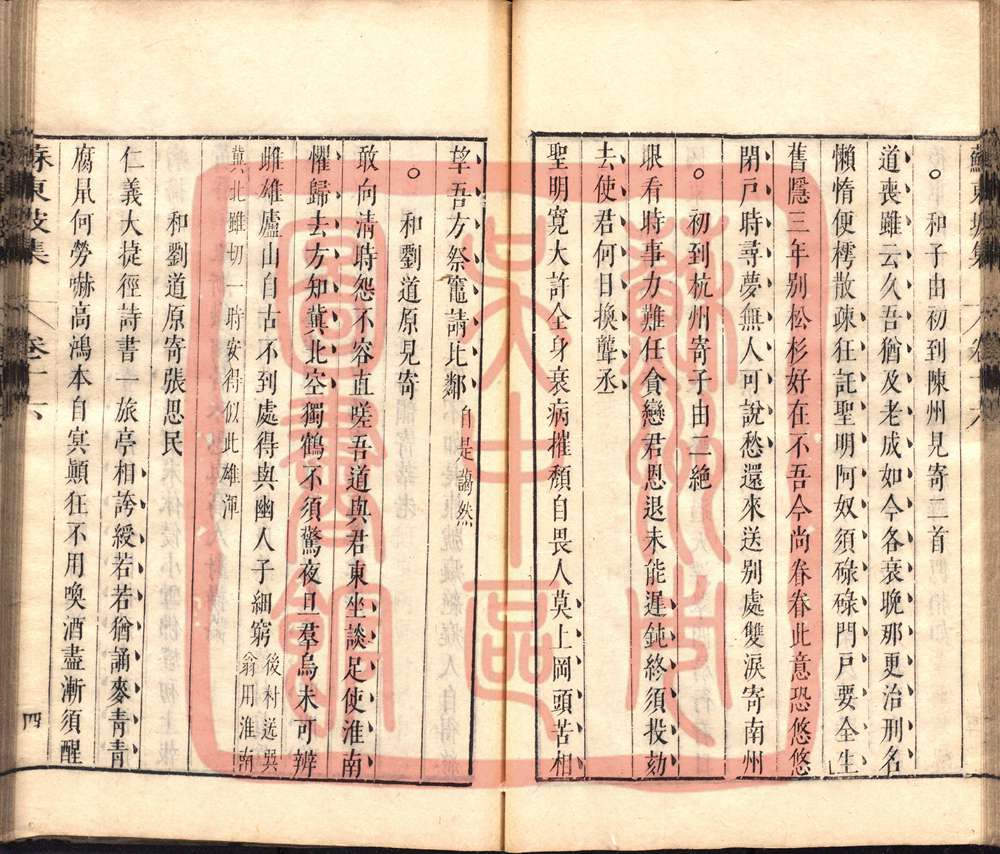 蘇東坡集 卷十六
○ 和子由初到陳州見寄二首
道喪雖云久吾猶及老成如今各衰晚那更治刑名
懶惰便樗散疎狂託聖明阿奴須碌碌門戶要全生
舊隱三年别松杉好在不吾今尚眷眷此意恐悠悠
閉戶時尋夢無人可說愁還來送别處雙淚寄南州
○ 初到杭州寄子由二絶
眼看時事力難任貪戀君恩退未能遲鈍終須投劾
去使君何日換聾丞
聖明寛大許全身衰病摧頽自畏人莫上岡頭苦相
望吾方祭竈請比鄰 自是藹然
○ 和劉道原見寄
敢向清時怨不容直嗟吾道與君東坐談足使淮南
懼歸去方知冀北空獨鶴不須驚夜旦羣烏未可辨
雌雄廬山自古不到處得與幽人子細窮 後村送巽翁用淮南
冀北雖切一時安得似此雄渾
和劉道原寄張思民
仁義大捷徑詩書一旅亭相誇綬若若猶誦麥青青
腐鼠何勞嚇高鴻本自冥顚狂不用喚酒盡漸須醒
蘇東坡集 卷十六 四
蘇州市文中區圖書館